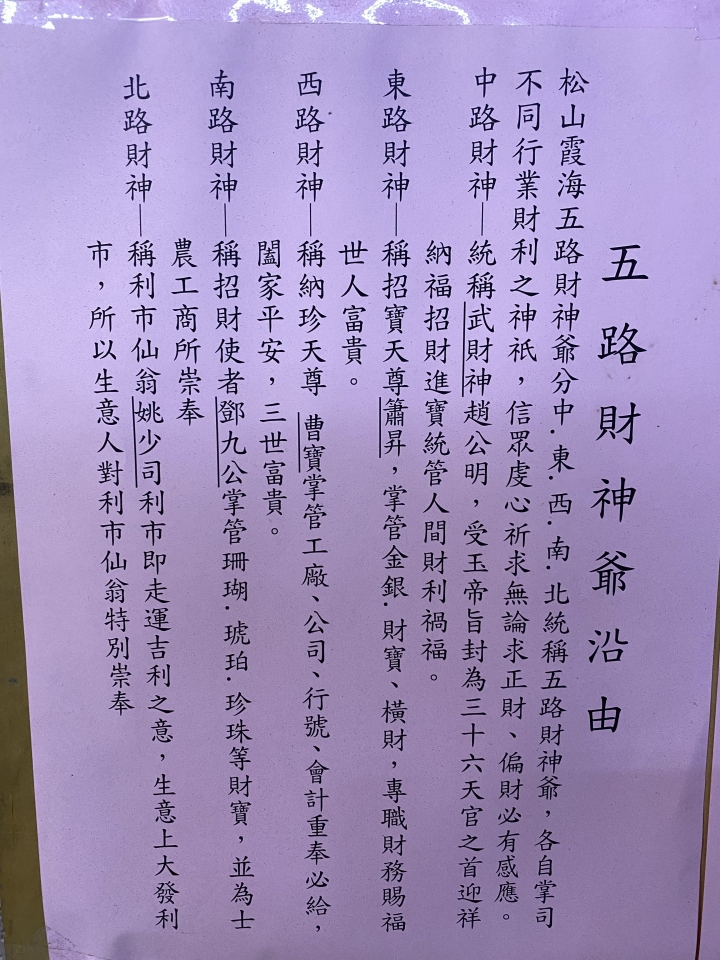 五路財神爺沿由
松山霞海五路財神爺分中.東.西.南.北統稱五路財神爺，各自掌司
不同行業財利之神祇，信眾虔心祈求無論求正財、偏財必有感應。
中路財神—統稱武財神趙公明，受玉帝旨封為三十六天官之首迎祥
納福招財進寶統管人間財利禍福。
東路財神—稱招寶天尊簫昇，掌管金銀.財寶、橫財，專職財務賜福
世人富貴。
西路財神—稱納珍天尊 曹寶掌管工廠、公司、行號、會計重奉必給，
闔家平安，三世富貴。
南路財神—稱招財使者鄧九公掌管珊瑚.琥珀.珍珠等財寶，並為士
農工商所崇奉
北路財神—稱利市仙翁姚少司利市即走運吉利之意，生意上大發利
市，所以生意人對利市仙翁特別崇奉